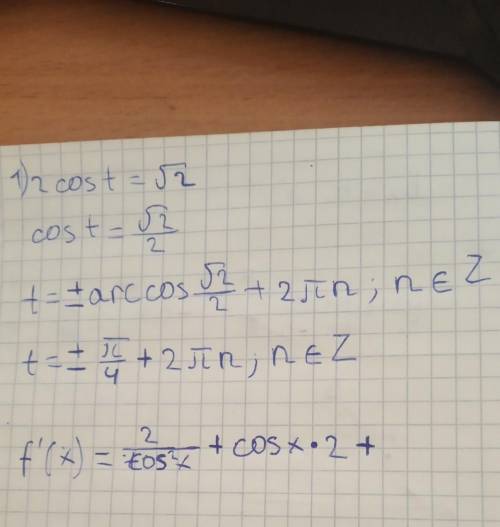 1) 2 cos t = √2
cos t = √2/2
t = ± arccos √2/2 + 2πn ; n ∈ Z
t = ± π/4 + 2πn ; n ∈ Z
f'(x) = 2/cos²x + cosx · 2 +